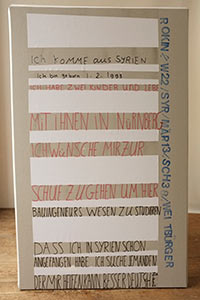 ICH KOMME AUS SYRIEN
ICH BIN GEBOREN 1. 2. 1993
ICH HABE ZWEI KINDER UND LEBE
MIT IHNEN IN NÜRNBERG
ICH WÜNSCHE MIR ZUR
SCHUF ZU GEHEN UM HIER
BAUINGENEURS WESEN ZU STUDIEREN
DASS ICH IN SYRIEN SCHON
ANGEFANGEN HABE ICH SUCHE JEMANDEN
DER MIR HELFEN KANN BESSER DEUTSCHE
WELTBÜRGER